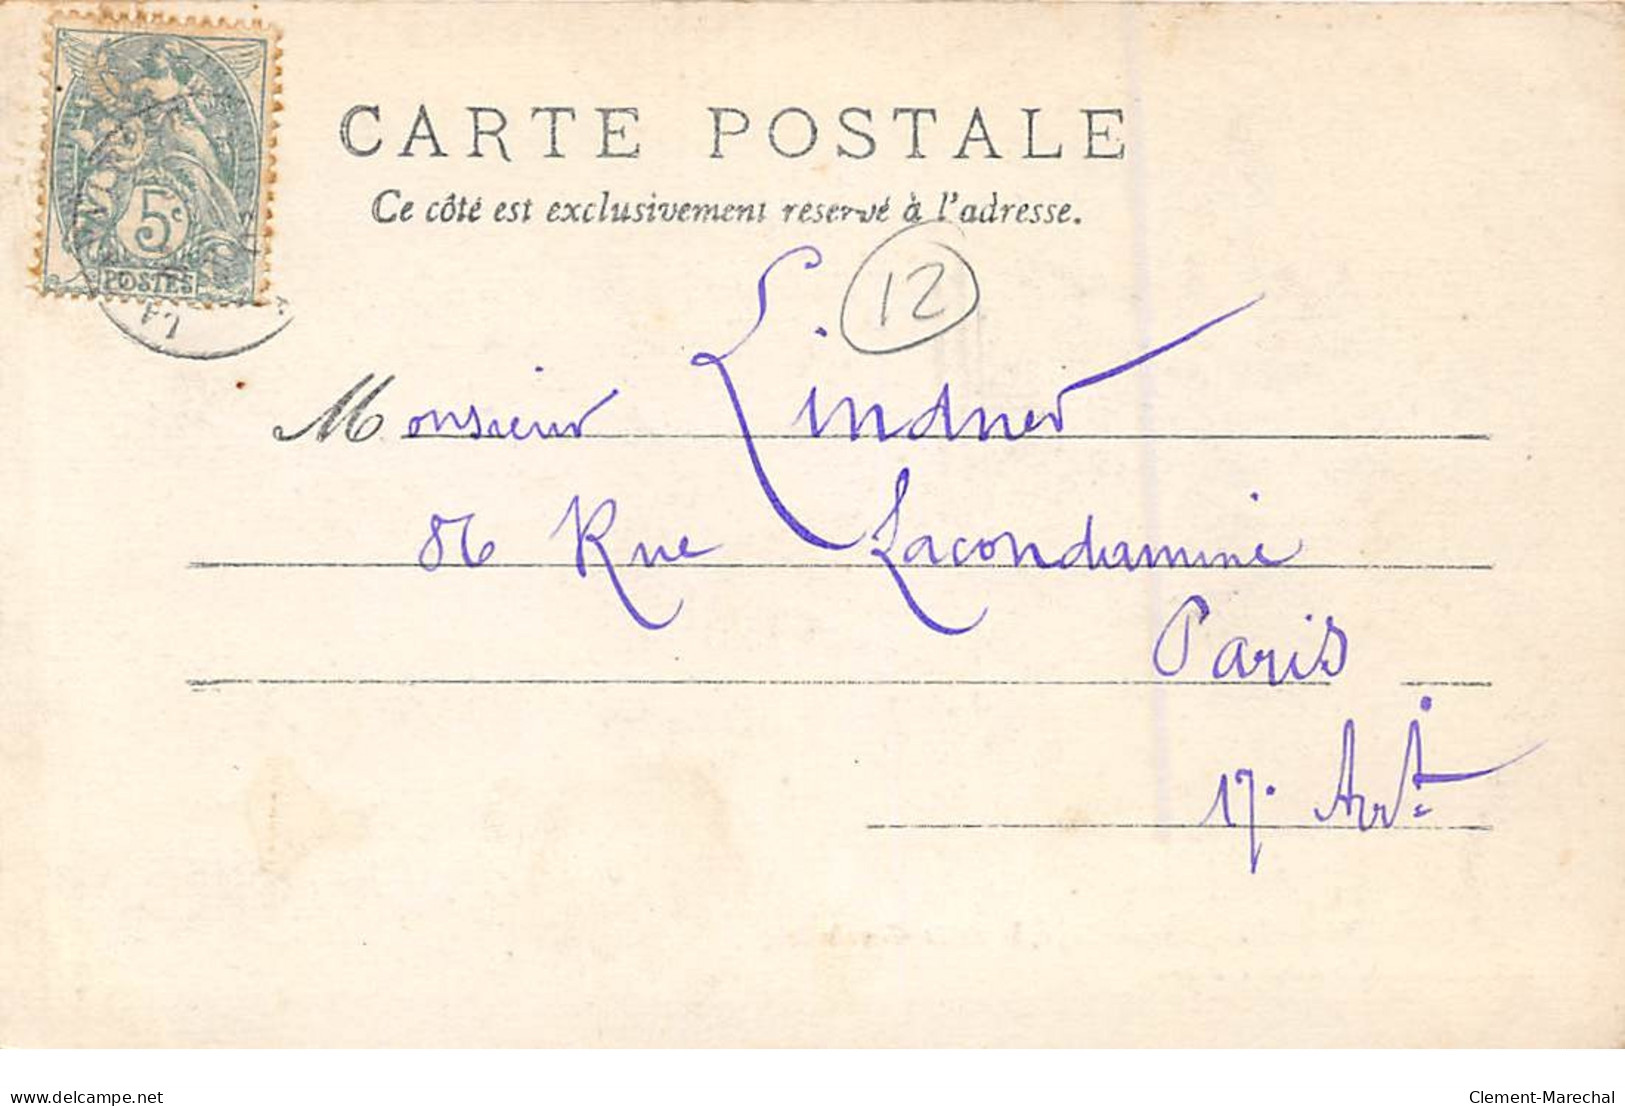 5c
POSTES
LA
CARTE POSTALE
Ce côté est exclusivement reservé à l'adresse.
12
Monsieur Lindner
86 Rue Lacondamine
Paris
17. Arrt
delcampe.net
Clement-Marechal